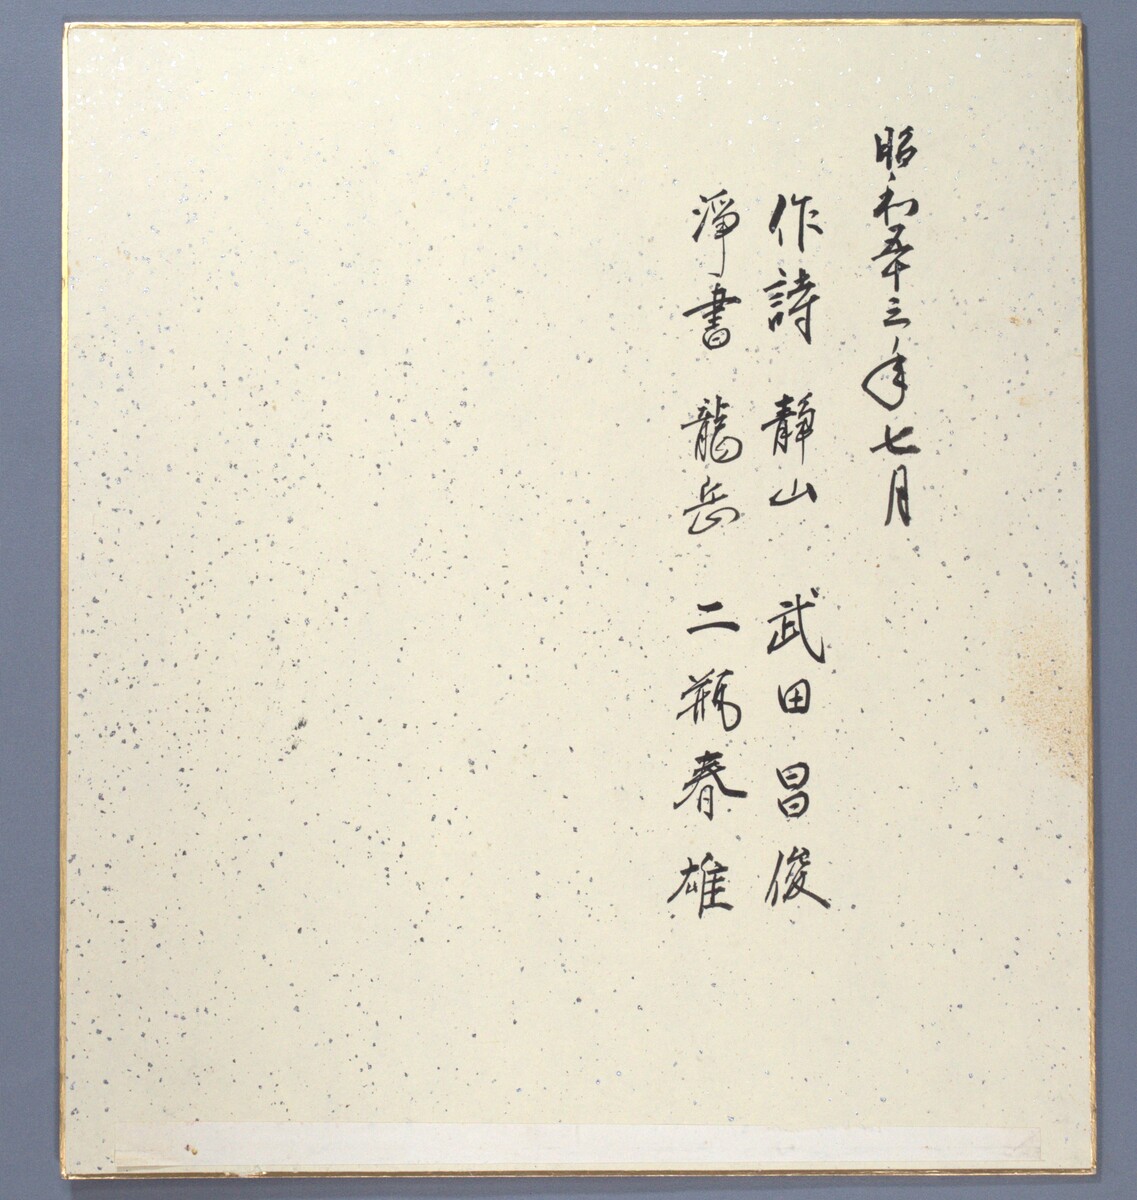 昭和五十三年七月
作詩 靜山 武田昌俊
淨書 龍岳 二瓶春雄